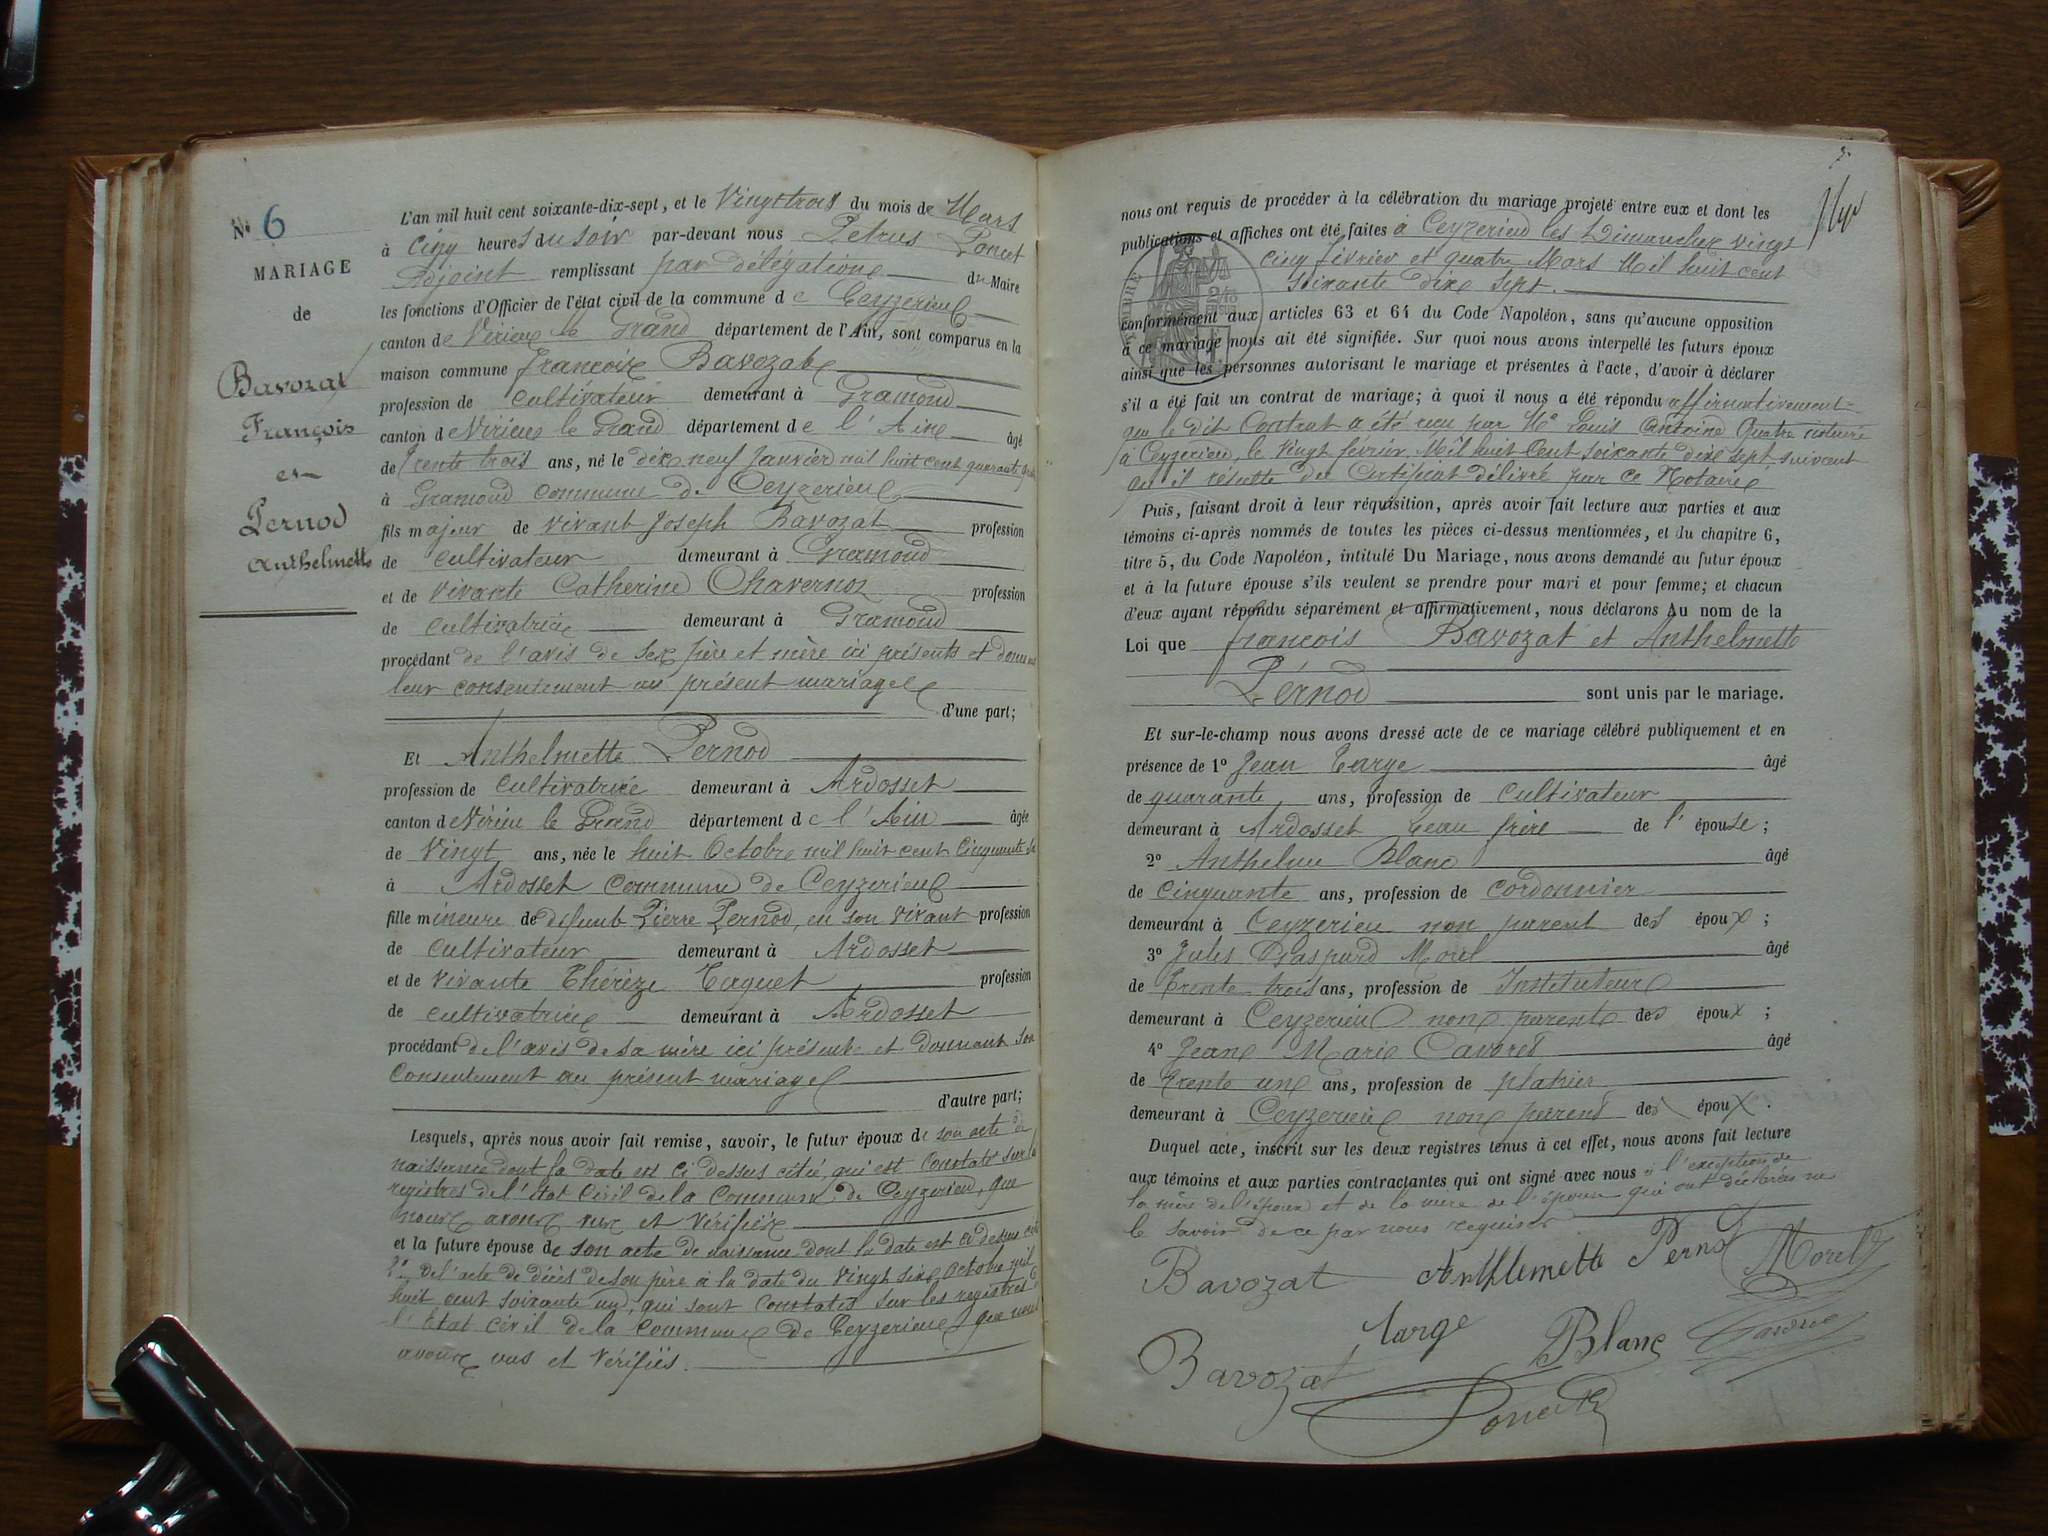 No 6
MARIAGE
de
Bavozat
François
et
Pernod
Anthelmette
L'an mil huit cent soixante-dix-sept, et le Vingt trois du mois de Mars
à cinq heures du soir par-devant nous Petrus Poncet
Adjoint remplissant par délégation du Maire
les fonctions d'Officier de l'état civil de la commune de Ceyzerieu
canton de Virieu le Grand département de l'Ain, sont comparus en la
maison commune François Bavozat
profession de cultivateur demeurant à Gramond
canton de Virieu le Grand département de l'Ain âgé
de trente trois ans, né le dix neuf Janvier mil huit cent quarante
à Gramond commune de Ceyzerieu
fils majeur de vivant Joseph Bavozat profession
de cultivateur demeurant à Gramond
et de vivante Catherine Chavernoz profession
de cultivatrice demeurant à Gramond
procédant de l'avis de ses père et mère ici présents et donnant
leur consentement au présent mariage
d'une part;
Et Anthelmette Pernod
profession de cultivatrice demeurant à Ardosset
canton de Virieu le Grand département de l'Ain âgée
de Vingt ans, née le huit Octobre mil huit cent cinquante six
à Ardosset commune de Ceyzerieu
fille mineure de défunt Pierre Pernod, en son vivant profession
de cultivateur demeurant à Ardosset
et de vivante Thérèze Taguet profession
de cultivatrice demeurant à Ardosset
procédant de l'avis de sa mère ici présente et donnant son
consentement au présent mariage
d'autre part;
Lesquels, après nous avoir fait remise, savoir, le futur époux de son acte de
naissance dont la date est ci dessus citée, qui est constaté sur les
registres de l'état civil de la commune de Ceyzerieu, que
nous avons vus et vérifiés
et la future épouse de son acte de naissance dont la date est ci dessus citée
2° de l'acte de décès de son père à la date du vingt six Octobre mil
huit cent soixante un, qui sont constatés sur les registres de
l'Etat civil de la commune de Ceyzerieu que nous
avons vus et vérifiés.
nous ont requis de procéder à la célébration du mariage projeté entre eux et dont les
publications et affiches ont été faites à Ceyzerieu les Dimanches vingt
cinq février et quatre Mars Mil huit cent
soixante dix sept.
conformément aux articles 63 et 64 du Code Napoléon, sans qu'aucune opposition
à ce mariage nous ait été signifiée. Sur quoi nous avons interpellé les futurs époux
ainsi que les personnes autorisant le mariage et présentes à l'acte, d'avoir à déclarer
s'il a été fait un contrat de mariage; à quoi il nous a été répondu affirmativement
que le dit Contrat a été reçu par Me Louis Antoine Quatre notaire
à Ceyzerieu, le vingt février Mil huit Cent soixante dix sept, suivant
qu'il résulte du Certificat délivré par ce Notaire
Puis, faisant droit à leur réquisition, après avoir fait lecture aux parties et aux
témoins ci-après nommés de toutes les pièces ci-dessus mentionnées, et du chapitre 6,
titre 5, du Code Napoléon, intitulé Du Mariage, nous avons demandé au futur époux
et à la future épouse s'ils veulent se prendre pour mari et pour femme; et chacun
d'eux ayant répondu séparément et affirmativement, nous déclarons Au nom de la
Loi que François Bavozat et Anthelmette
Pernod sont unis par le mariage.
Et sur-le-champ nous avons dressé acte de ce mariage célébré publiquement et en
présence de 1° Jean Targe âgé
de quarante ans, profession de cultivateur
demeurant à Ardosset beau frère de l'épouse;
2° Anthelme Blanc âgé
de cinquante ans, profession de cordonnier
demeurant à Ceyzerieu non parent des époux;
3° Jules Gaspard Morel âgé
de trente trois ans, profession de Instituteur
demeurant à Ceyzerieu non parent des époux;
4° Jean Marie Cavoret âgé
de trente un ans, profession de plâtrier
demeurant à Ceyzerieu non parent des époux.
Duquel acte, inscrit sur les deux registres tenus à cet effet, nous avons fait lecture
aux témoins et aux parties contractantes qui ont signé avec nous à l'exception de
la mère de l'époux et de la mère de l'épouse qui ont déclaré ne
le savoir de ce par nous requises
Bavozat Anthlemette Pernod Morel
Targe Blanc
Bavozat
Poncet